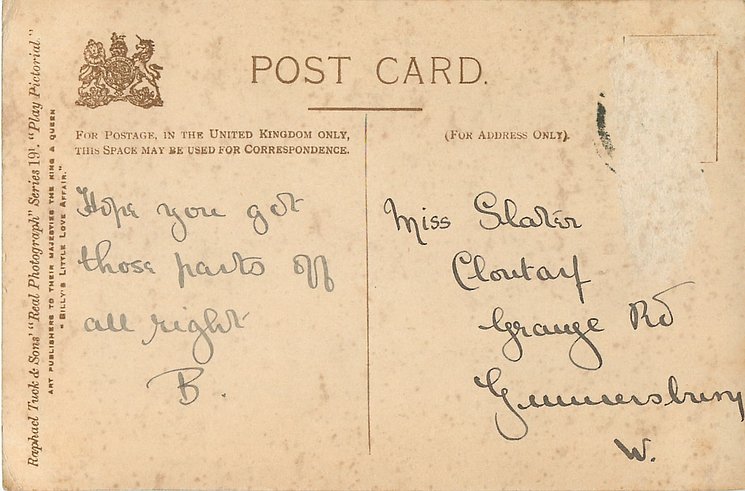 POST CARD.
FOR POSTAGE, IN THE UNITED KINGDOM ONLY,
THIS SPACE MAY BE USED FOR CORRESPONDENCE.
(FOR ADDRESS ONLY).
Raphael Tuck & Sons' "Real Photograph" Series 191. "Play Pictorial."
ART PUBLISHERS TO THEIR MAJESTIES THE KING & QUEEN
"BILLY'S LITTLE LOVE AFFAIR."
Hope you got
those parts off
all right
B.
Miss Slater
Clontarf
Grange Rd
Gunnersbury
W.